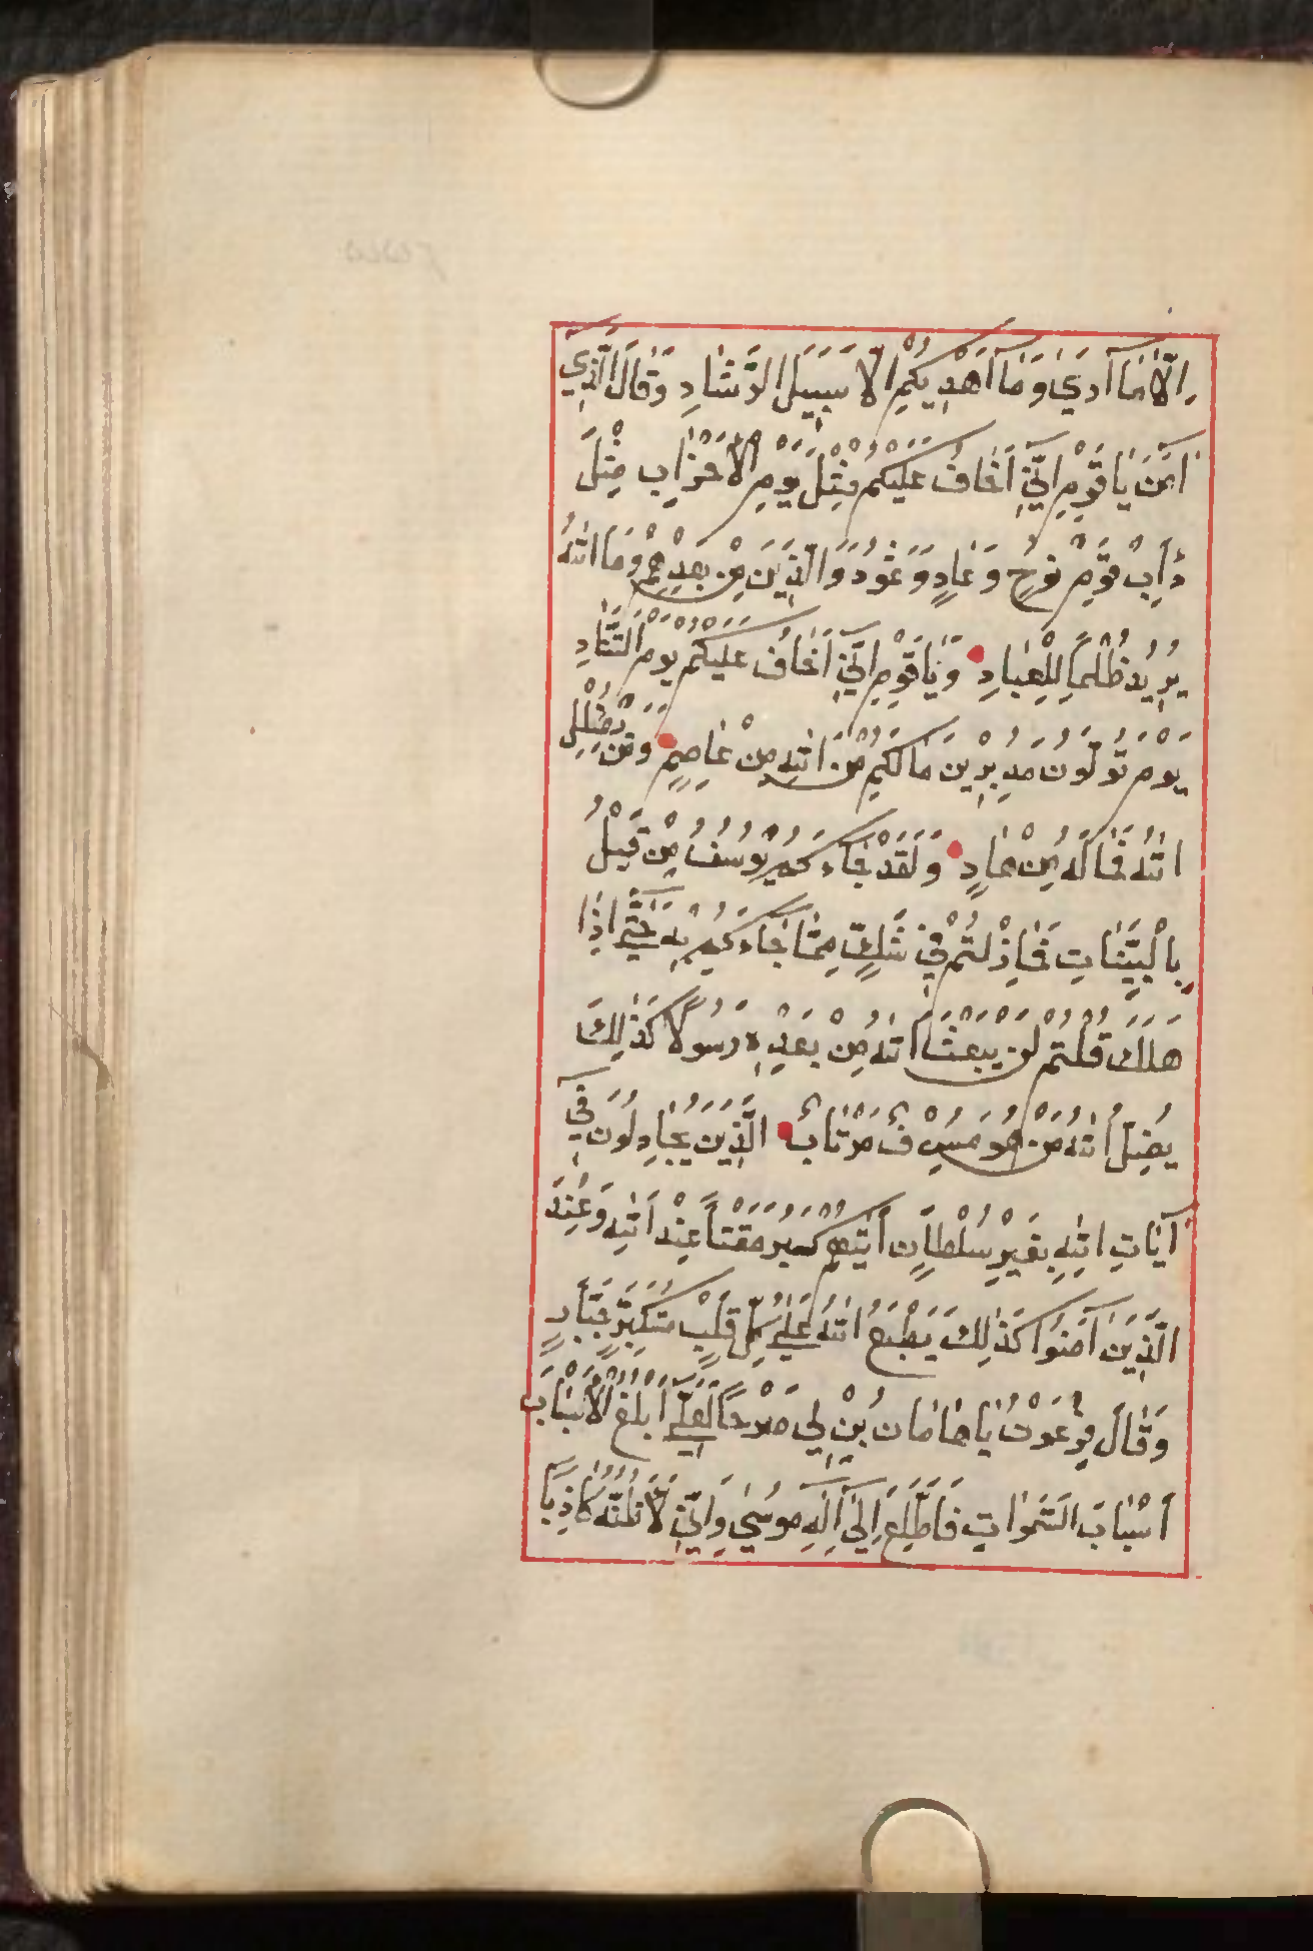 اِلَّا مَا آَرٰي وَمَا آَهْدِيكُمْ اِلَّا سَبِيلَ الرَّشَادِ وَقَالَ الَّذِيٓ
اٰمَنَ يَا قَوْمِ اِنِّيٓ اَخَافُ عَلَيْكُمْ مِثْلَ يَوْمِ الْاَحْزَابِ مِثْلَ
دَاْبِ قَوْمِ نُوحٍ وَعَادٍ وَثَمُودَ وَالَّذِينَ مِنْ بَعْدِهِمْ وَمَا اللهُ
يُرِيدُ ظُلْمًا لِلْعِبَادِ وَيَا قَوْمِ اِنِّيٓ اَخَافُ عَلَيْكُمْ يَوْمَ التَّنَادِ
يَوْمَ تُوَلُّونَ مُدْبِرِينَ مَالَكُمْ مِنَ اللهِ مِنْ عَاصِمٍ وَمَنْ يُضْلِلِ
اللهُ فَمَالَهُ مِنْ هَادٍ وَلَقَدْ جَاءَكُمْ يُوسُفُ مِنْ قَبْلُ
بِالْبَيِّنَاتِ فَمَازِلْتُمْ فِي شَكٍّ مِمَّا جَاءَكُمْ بِهِ حَتّٰيٓ اِذَا
هَلَكَ قُلْتُمْ لَنْ يَبْعَثَ اللهُ مِنْ بَعْدِهِ رَسُولًا كَذٰلِكَ
يُضِلُّ اللهُ مَنْ هُوَ مُسْرِفٌ مُرْتَابٌ الَّذِينَ يُجَادِلُونَ فِيٓ
آيَاتِ اللهِ بِغَيْرِ سُلْطَانٍ اَتٰيهُمْ كَبُرَ مَقْتًا عِنْدَ اللهِ وَعِنْدَ
الَّذِينَ آمَنُوا كَذٰلِكَ يَطْبَعُ اللهُ عَلٰي كُلِّ قَلْبِ مُتَكَبِّرٍ جَبَّارٍ
وَقَالَ فِرْعَوْنُ يَا هَامَانُ ابْنِ لِي صَرْحًا لَعَلِّيٓ اَبْلُغُ الْاَسْبَابَ
اَسْبَابَ السَّمٰوَاتِ فَاَطَّلِعَ اِلٰيٓ اِلٰهِ مُوسٰي وَاِنِّي لَاَظُنُّهُ كَاذِبًا